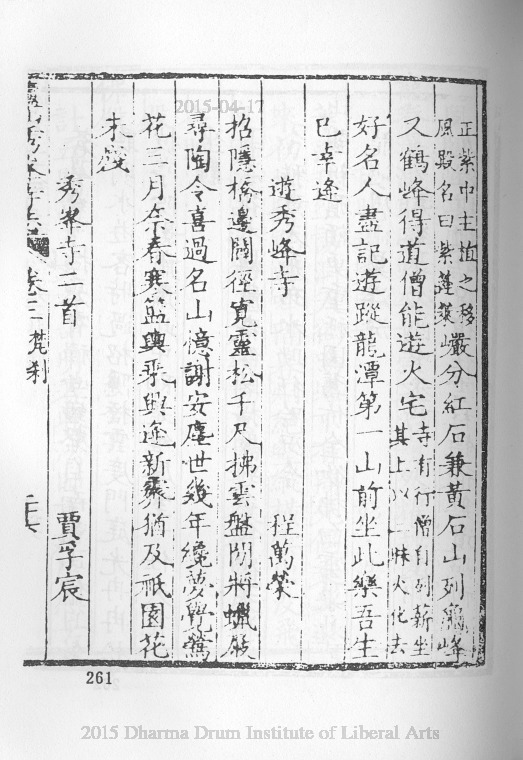 2015-04-17
正紫中主植之移巖分紅石兼黃石山列龜峰
風殿名曰紫蓮
又鶴峰得道僧能遊火宅寺有行僧自列薪坐
其上以三昧火化去
好名人盡記遊蹤龍潭第一山前坐此樂吾生
已卓逢
遊秀峰寺 程萬榮
招隱橋邊闢徑寬靈松千尺拂雲盤閒將蠟屐
尋陶令喜過名山憶謝安塵世幾年纔夢覺鶯
花三月奈春寒籃輿乘興逢新霽猶及祇園花
未殘
秀峯寺二首 賈孚宸
卷二 梵刹
261
2015 Dharma Drum Institute of Liberal Arts